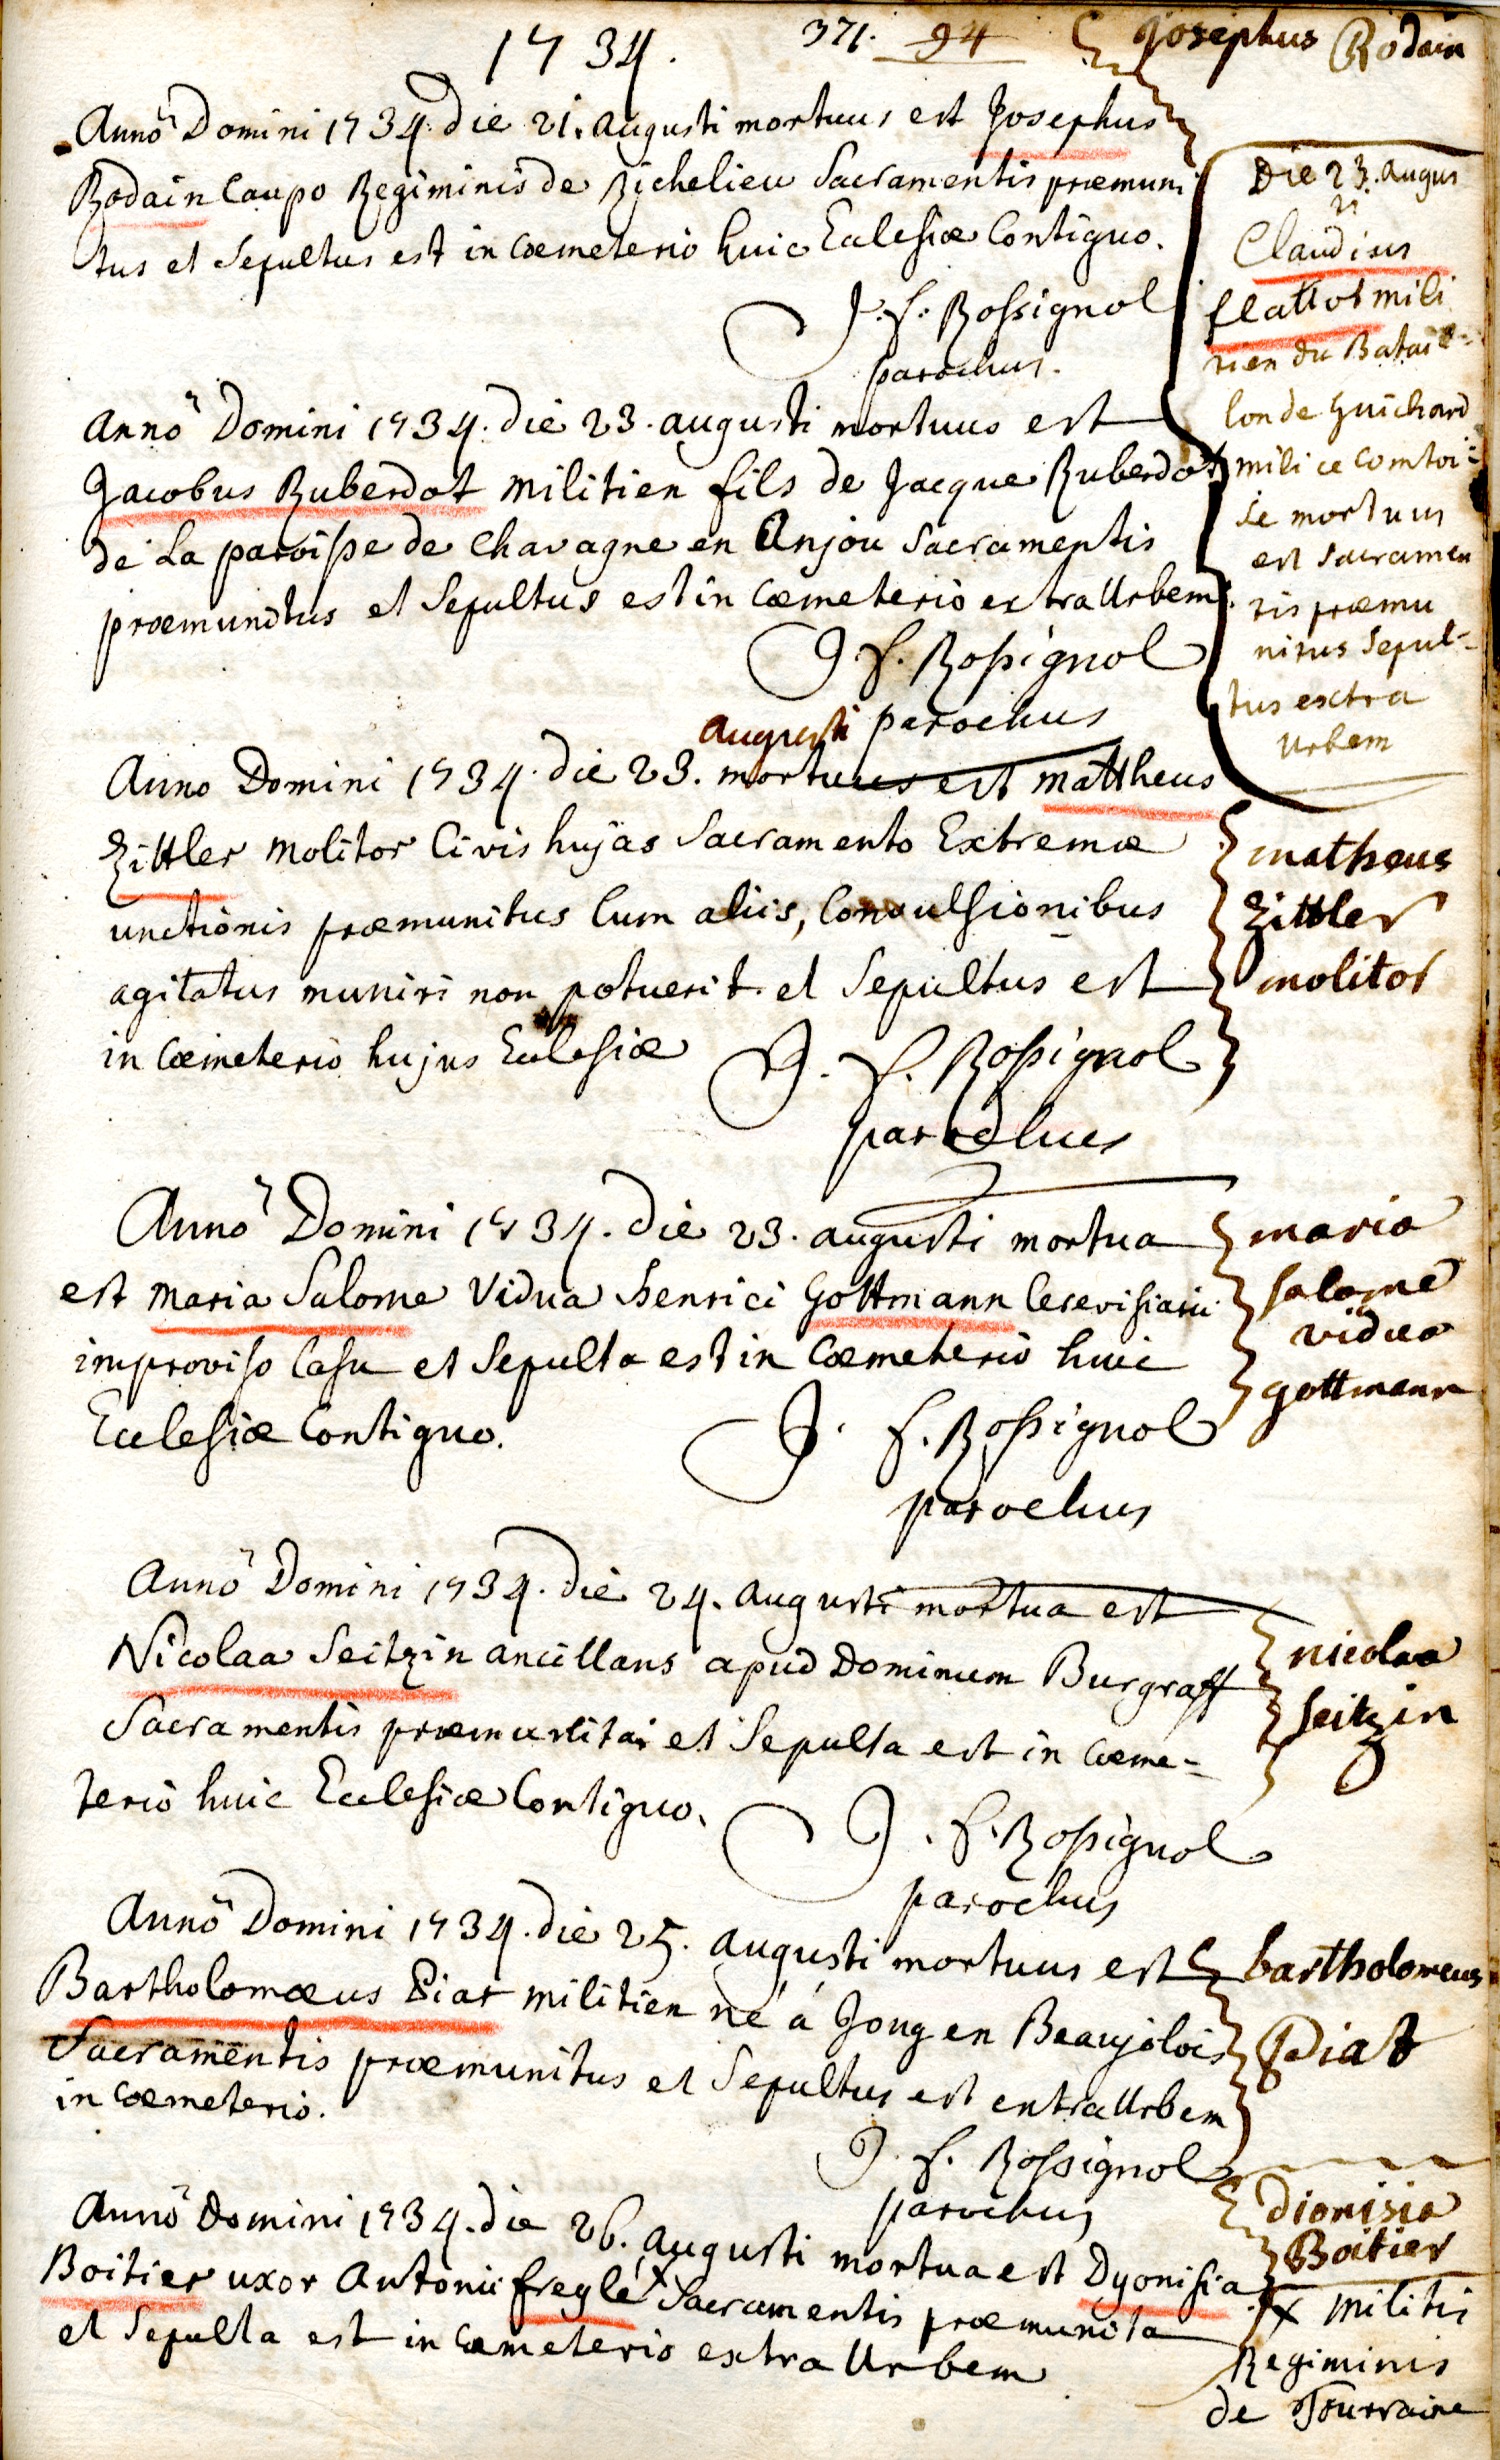 1734.
371. 94
Josephus Rodain
Anno Domini 1734. die 21. augusti mortuus est Josephus
Rodain Caupo Regiminis de Richelieu Sacramentis præmuni
tus et Sepultus est in Cœmeterio huic Ecclesiæ Contiguo.
J. f. Rossignol
parochus.
Die 23. augus
ti
Claudius
flattot mili
tien du Batail-
lon de Guichard
milice comtoi-
se mortuus
est sacramen
tis præmu
nitus Sepul-
tus extra
Urbem
anno Domini 1734. die 23. augusti mortuus est
Jacobus Ruberdot militien fils de Jacque Ruberdot
de La paroisse de Chavagne en Anjou Sacramentis
præmunitus et Sepultus est in Cœmeterio extra Urbem.
J. f. Rossignol
parochus
augusti
Anno Domini 1734. die 23. mortuus est mattheus
Zittler molitor Civis hujas Sacramento Extremæ
unctionis præmunitus Cum aliis, Convulsionibus
agitatus muniri non potuerit et Sepultus est
in Cœmeterio hujus Ecclesiæ
J. f. Rossignol
parochus
matheus
Zittler
molitor
Anno Domini 1734. die 23. augusti mortua
est Maria Salome Vidua henrici Gottmann Cerevisiarii
improviso Casu et Sepulta est in Cœmeterio huic
Ecclesiæ Contiguo.
J. f. Rossignol
parochus
maria
salome
vidua
gottmann
Anno Domini 1734. die 24. augusti mortua est
Nicolaa Seitzin ancillans apud Dominum Burgraff
Sacramentis præmunita et Sepulta est in cœme-
terio huic Ecclesiæ Contiguo.
J. f. Rossignol
parochus
nicolaa
Seitzin
Anno Domini 1734. die 25. augusti mortuus est
Bartholomæus Piat militien né à Joug en Beaujolois
Sacramentis præmunitus et Sepultus est extra Urbem
in Cœmeterio.
J. f. Rossignol
parochus
bartholomeus
Piat
Anno Domini 1734. die 26. augusti mortua est Dyonisia
Boitier uxor Antonii freglé x Sacramentis præmunita
et Sepulta est in Cœmeterio extra Urbem
Dionisia
Boitier
x militis
Regiminis
de Tourraine